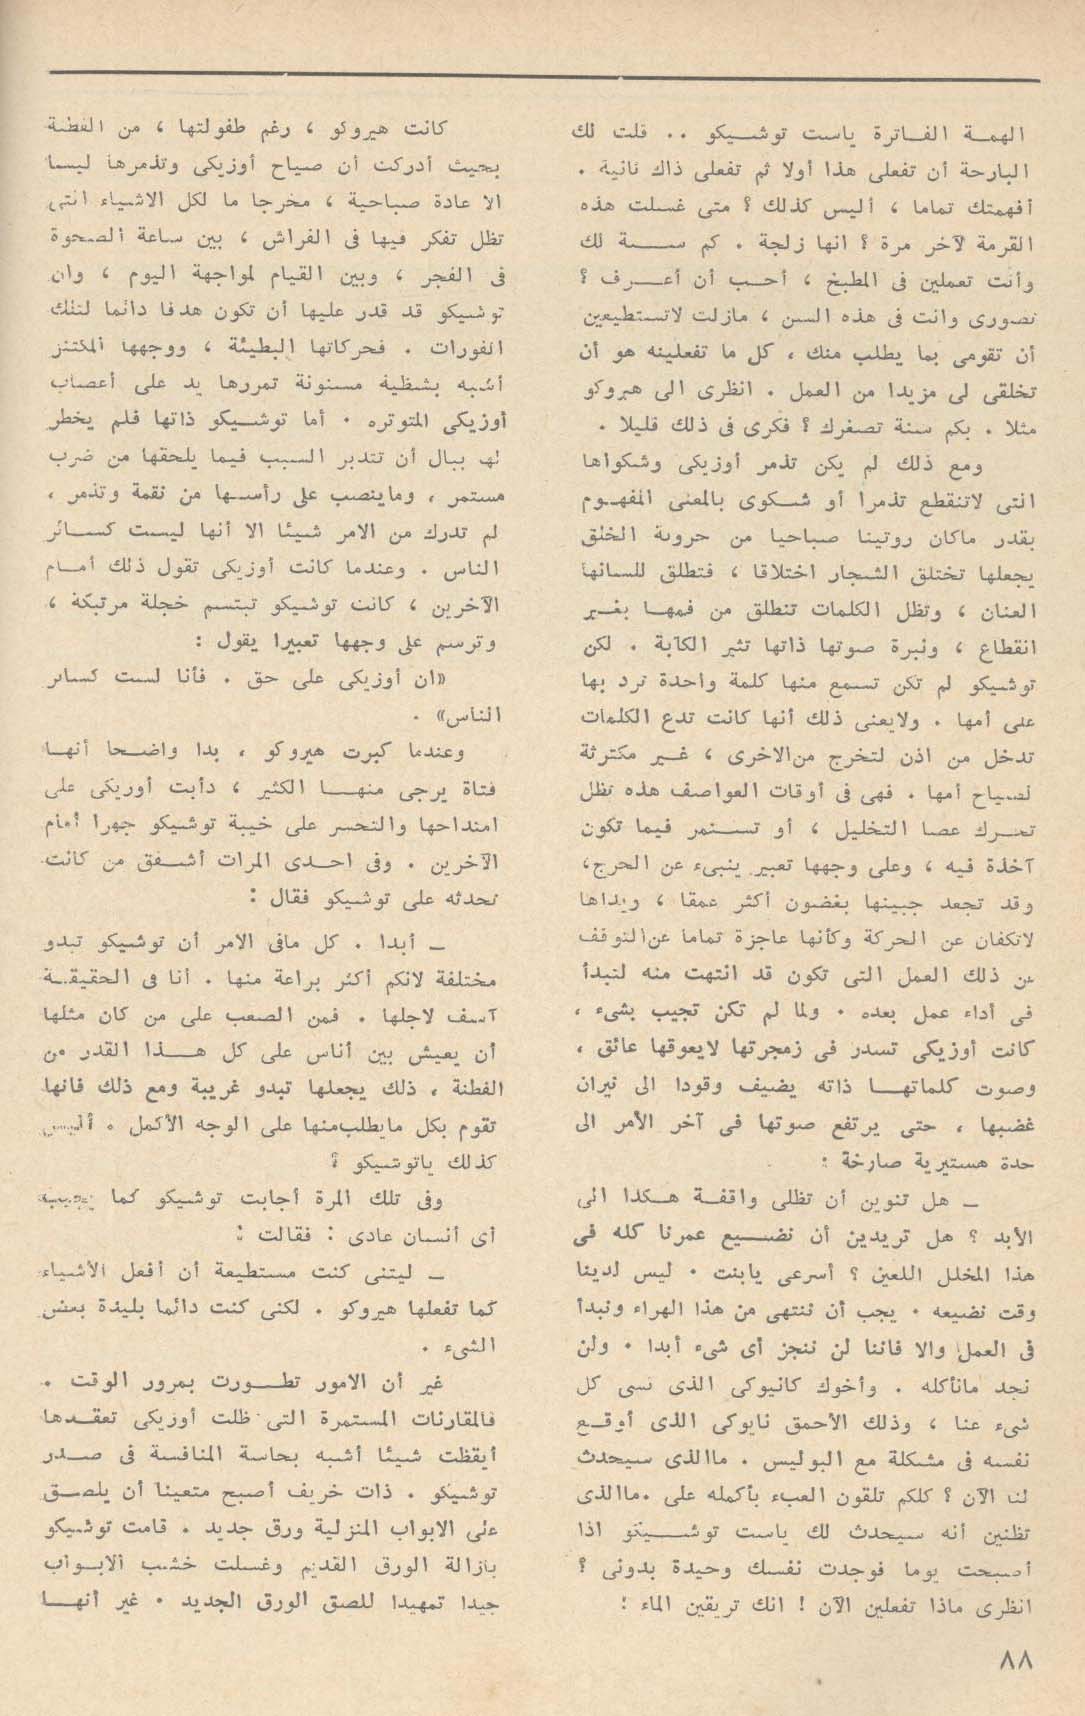 الهمة الفاترة ياست توشيكو .. قلت لك
البارحة أن تفعلى هذا أولا ثم تفعلى ذاك ثانية .
أفهمتك تماما ، أليس كذلك ؟ متى غسلت هذه
القرمة لآخر مرة ؟ انها زلجة . كم سنة لك
وأنت تعملين فى المطبخ ، أحب أن أعرف ؟
تصورى وانت فى هذه السن ، مازلت لاتستطيعين
أن تقومى بما يطلب منك ، كل ما تفعلينه هو أن
تخلقى لى مزيدا من العمل . انظرى الى هيروكو
مثلا . بكم سنة تصغرك ؟ فكرى فى ذلك قليلا .
ومع ذلك لم يكن تذمر أوزيكى وشكواها
التى لاتنقطع تذمرا أو شكوى بالمعنى المفهوم
بقدر ماكان روتينا صباحيا من حرونة الخلق
يجعلها تختلق الشجار اختلاقا ، فتطلق للسانها
العنان ، وتظل الكلمات تنطلق من فمها بغير
انقطاع ، ونبرة صوتها ذاتها تثير الكآبة . لكن
توشيكو لم تكن تسمع منها كلمة واحدة ترد بها
على أمها . ولايعنى ذلك أنها كانت تدع الكلمات
تدخل من اذن لتخرج من الاخرى ، غير مكترثة
لصياح أمها . فهى فى أوقات العواصف هذه تظل
تحرك عصا التخليل ، أو تستمر فيما تكون
آخذة فيه ، وعلى وجهها تعبير ينبىء عن الحرج ،
وقد تجعد جبينها بغضون أكثر عمقا ، ويداها
لاتكفان عن الحركة وكأنها عاجزة تماما عن التوقف
عن ذلك العمل التى تكون قد انتهت منه لتبدأ
فى أداء عمل بعده . ولما لم تكن تجيب بشىء ،
كانت أوزيكى تسدر فى زمجرتها لايعوقها عائق ،
وصوت كلماتها ذاته يضيف وقودا الى نيران
غضبها ، حتى يرتفع صوتها فى آخر الأمر الى
حدة هستيرية صارخة :
ـ هل تنوين أن تظلى واقفة هكذا الى
الأبد ؟ هل تريدين أن نضيع عمرنا كله فى
هذا المخلل اللعين ؟ أسرعى يابنت . ليس لدينا
وقت نضيعه . يجب أن ننتهى من هذا الهراء ونبدأ
فى العمل والا فاننا لن ننجز أى شىء أبدا . ولن
نجد مانأكله . وأخوك كانيوكى الذى نسى كل
شىء عنا ، وذلك الأحمق نايوكى الذى أوقع
نفسه فى مشكلة مع البوليس . ماالذى سيحدث
لنا الآن ؟ كلكم تلقون العبء بأكمله على . ماالذى
تظنين أنه سيحدث لك ياست توشيكو اذا
أصبحت يوما فوجدت نفسك وحيدة بدونى ؟
انظرى ماذا تفعلين الآن ! انك تريقين الماء !
كانت هيروكو ، رغم طفولتها ، من الفطنة
بحيث أدركت أن صياح أوزيكى وتذمرها ليسا
الا عادة صباحية ، مخرجا ما لكل الاشياء التى
تظل تفكر فيها فى الفراش ، بين ساعة الصحوة
فى الفجر ، وبين القيام لمواجهة اليوم ، وان
توشيكو قد قدر عليها أن تكون هدفا دائما لتلك
الفورات . فحركاتها البطيئة ، ووجهها المكتنز
أشبه بشظية مسنونة تمررها يد على أعصاب
أوزيكى المتوتره . أما توشيكو ذاتها فلم يخطر
لها ببال أن تتدبر السبب فيما يلحقها من ضرب
مستمر ، وماينصب على رأسها من نقمة وتذمر ،
لم تدرك من الامر شيئا الا أنها ليست كسائر
الناس . وعندما كانت أوزيكى تقول ذلك أمام
الآخرين ، كانت توشيكو تبتسم خجلة مرتبكة ،
وترسم على وجهها تعبيرا يقول :
«ان أوزيكى على حق . فأنا لست كسائر
الناس» .
وعندما كبرت هيروكو ، بدا واضحا أنها
فتاة يرجى منها الكثير ، دأبت أوزيكى على
امتداحها والتحسر على خيبة توشيكو جهرا أمام
الآخرين . وفى احدى المرات أشفق من كانت
تحدثه على توشيكو فقال :
ـ أبدا . كل مافى الامر أن توشيكو تبدو
مختلفة لانكم أكثر براعة منها . أنا فى الحقيقة
آسف لاجلها . فمن الصعب على من كان مثلها
أن يعيش بين أناس على كل هذا القدر من
الفطنة ، ذلك يجعلها تبدو غريبة ومع ذلك فانها
تقوم بكل مايطلب منها على الوجه الأكمل . أليس
كذلك ياتوشيكو ؟
وفى تلك المرة أجابت توشيكو كما يجيب
أى أنسان عادى : فقالت :
ـ ليتنى كنت مستطيعة أن أفعل الأشياء
كما تفعلها هيروكو . لكنى كنت دائما بليدة بعض
الشىء .
غير أن الامور تطورت بمرور الوقت .
فالمقارنات المستمرة التى ظلت أوزيكى تعقدها
أيقظت شيئا أشبه بحاسة المنافسة فى صدر
توشيكو . ذات خريف أصبح متعينا أن يلصق
على الابواب المنزلية ورق جديد . قامت توشيكو
بازالة الورق القديم وغسلت خشب الابواب
جيدا تمهيدا للصق الورق الجديد . غير أنها
٨٨